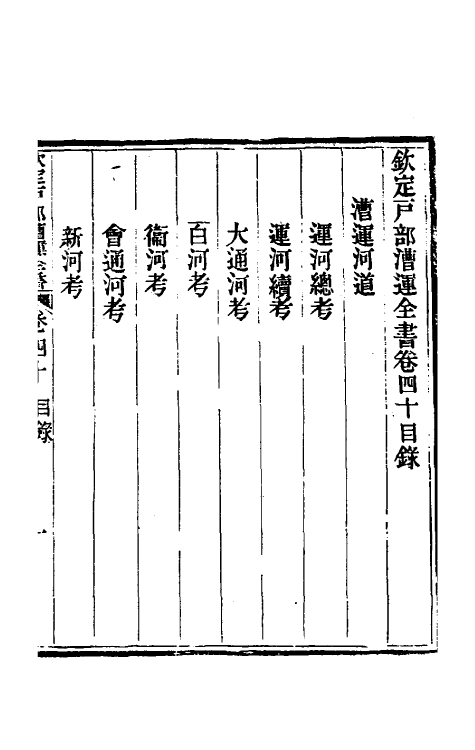 欽定戸部漕運全書卷四十目錄
漕運河道
運河總考
運河續考
大通河考
百河考
衞河考
會通河考
新河考
欽定戸部漕運全書 卷四十 目錄 一